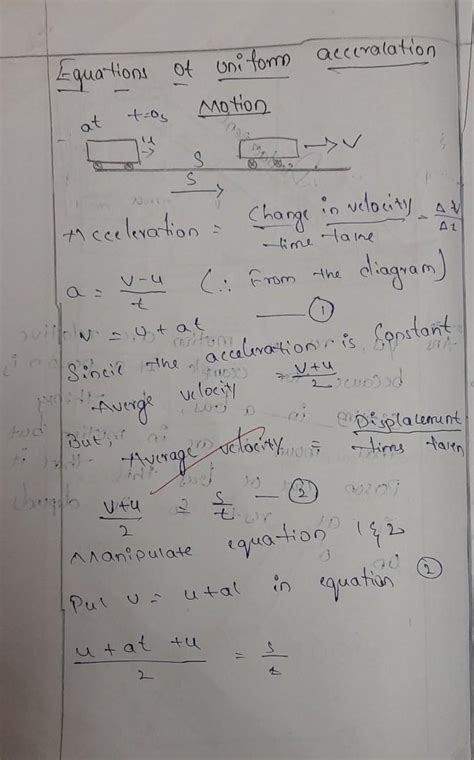 Equations of uniform acceralation
Motion
at t=0s
u
V
S
S
Acceleration = Change in velocity / time take = Δv/Δt
a = v-u/t (∵ From the diagram)
v = u + at — ①
Since the acceleration is Constant
Averge velocity = v+u/2
But, Average velocity = Displacement / time taken
v+u/2 = s/t — ②
Manipulate equation 1 & 2
Put v = u+at in equation ②
u + at + u / 2 = s/t